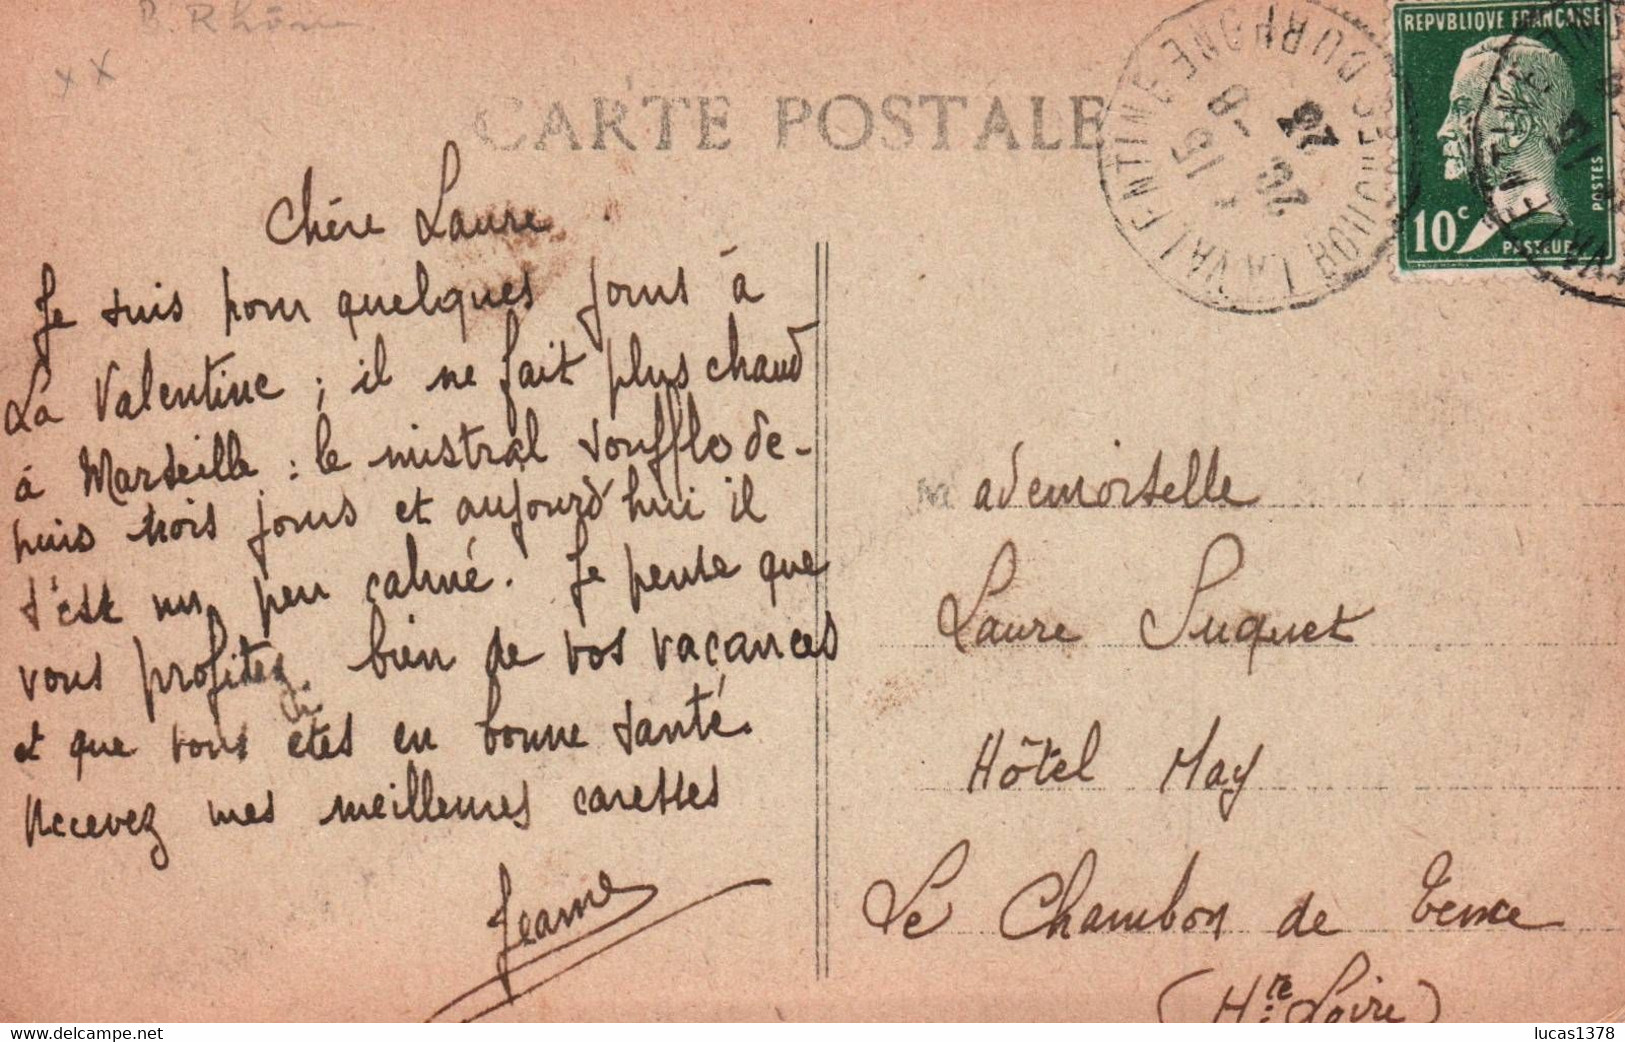 B. Rhône
x x
CARTE POSTALE
REPVBLIQVE FRANÇAISE
10c
POSTES
PASTEUR
LA VALENTINE
BOUCHES DU RHONE
15
20 -8
25
Chère Laure
Je suis pour quelques jours à
La Valentine ; il ne fait plus chaud
à Marseille : le mistral souffle de-
puis trois jours et aujourd'hui il
s'est un peu calmé. Je pense que
vous profitez bien de vos vacances
et que vous êtes en bonne santé.
Recevez mes meilleures caresses
Jeanne
Mademoiselle
Laure Suquet
Hôtel May
Le Chambon de Tence
(Hte Loire)
lucas1378